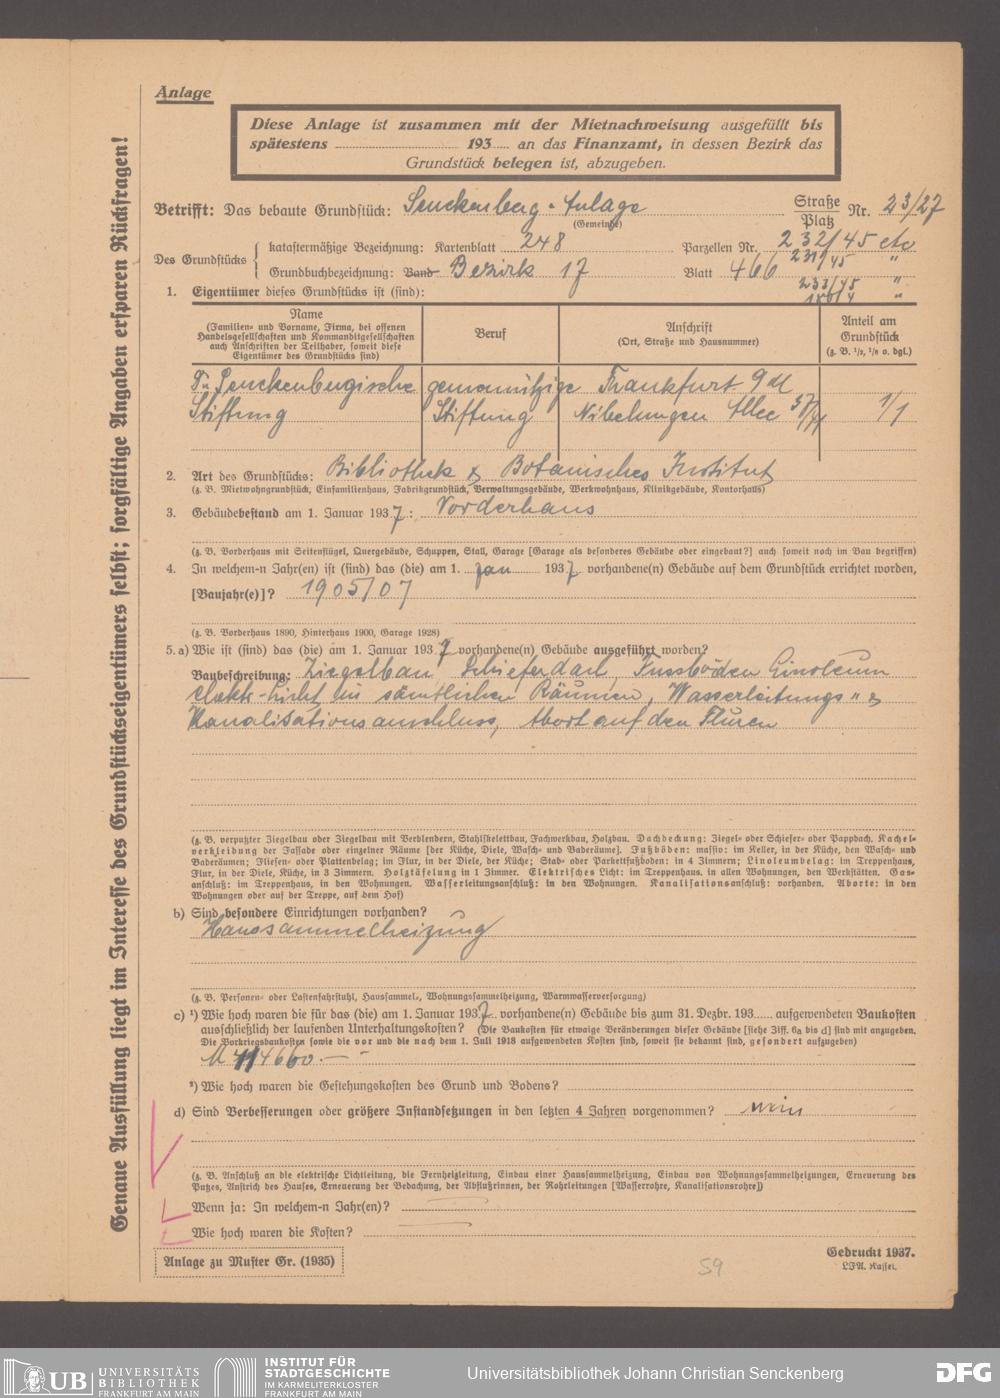 Anlage
Diese Anlage ist zusammen mit der Mietnachweisung ausgefüllt bis
spätestens 193 an das Finanzamt, in dessen Bezirk das
Grundstück belegen ist, abzugeben.
Genaue Ausfüllung liegt im Interesse des Grundstückseigentümers selbst; sorgfältige Angaben ersparen Rückfragen!
Betrifft: Das bebaute Grundstück: Senckenberg-Anlage Straße Platz Nr. 23/27
(Gemeinde)
Des Grundstücks
katastermäßige Bezeichnung: Kartenblatt 248 Parzellen Nr. 232/45 etc
231/45 "
Grundbuchbezeichnung: Band Bezirk 17 Blatt 466
233/45 "
1. Eigentümer dieses Grundstücks ist (sind):
Name
(Familien- und Vorname, Firma, bei offenen
Handelsgesellschaften und Kommanditgesellschaften
auch Anschriften der Teilhaber, soweit diese
Eigentümer des Grundstücks sind)
Beruf
Anschrift
(Ort, Straße und Hausnummer)
Anteil am
Grundstück
(z. B. 1/2, 1/8 o. dgl.)
Senckenbergische gemeinnützige Frankfurt a/M
Stiftung Stiftung Nibelungen Allee 1/1
2. Art des Grundstücks: Bibliothek & Botanisches Institut
(z. B. Mietwohngrundstück, Einfamilienhaus, Fabrikgrundstück, Verwaltungsgebäude, Werkwohnhaus, Klinikgebäude, Kontorhaus)
3. Gebäudebestand am 1. Januar 1937: Vorderhaus
(z. B. Vorderhaus mit Seitenflügel, Quergebäude, Schuppen, Stall, Garage [Garage als besonderes Gebäude oder eingebaut?] auch soweit noch im Bau begriffen)
4. In welchem-n Jahr(en) ist (sind) das (die) am 1. Jan 1937 vorhandene(n) Gebäude auf dem Grundstück errichtet worden,
[Baujahr(e)]? 1905/07
(z. B. Vorderhaus 1890, Hinterhaus 1900, Garage 1928)
5. a) Wie ist (sind) das (die) am 1. Januar 1937 vorhandene(n) Gebäude ausgeführt worden?
Baubeschreibung: Ziegelbau, Schieferdach, Fussböden Linoleum
elektr. Licht in sämtlichen Räumen, Wasserleitungs- &
Kanalisationsanschluss, Abort auf den Fluren
(z. B. verputzter Ziegelbau oder Ziegelbau mit Verblendern, Stahlskelettbau, Fachwerkbau, Holzbau. Dachdeckung: Ziegel- oder Schiefer- oder Pappdach. Kachel-
verkleidung der Fassade oder einzelner Räume [der Küche, Diele, Wasch- und Baderäume]. Fußböden: massiv: im Keller, in der Küche, den Wasch- und
Baderäumen; Fliesen- oder Plattenbelag; im Flur, in der Diele, der Küche; Stab- oder Parkettfußboden: in 4 Zimmern; Linoleumbelag: im Treppenhaus,
Flur, in der Diele, Küche, in 3 Zimmern. Holztäfelung in 1 Zimmer. Elektrisches Licht: im Treppenhaus, in allen Wohnungen, den Werkstätten. Gas-
anschluß: im Treppenhaus, in den Wohnungen. Wasserleitungsanschluß: in den Wohnungen. Kanalisationsanschluß: vorhanden. Aborte: in den
Wohnungen oder auf der Treppe, auf dem Hof)
b) Sind besondere Einrichtungen vorhanden?
Haussammelheizung
(z. B. Personen- oder Lastenfahrstuhl, Haussammel-, Wohnungssammelheizung, Warmwasserversorgung)
c) ¹) Wie hoch waren die für das (die) am 1. Januar 1937 vorhandene(n) Gebäude bis zum 31. Dezbr. 193 aufgewendeten Baukosten
ausschließlich der laufenden Unterhaltungskosten? (Die Baukosten für etwaige Veränderungen dieser Gebäude [siehe Ziff. 6a bis d] sind mit anzugeben.
Die Vorkriegsbaukosten sowie die vor und die nach dem 1. Juli 1918 aufgewendeten Kosten sind, soweit sie bekannt sind, gesondert aufzugeben)
²) Wie hoch waren die Gestehungskosten des Grund und Bodens?
d) Sind Verbesserungen oder größere Instandsetzungen in den letzten 4 Jahren vorgenommen? nein
(z. B. Anschluß an die elektrische Lichtleitung, die Fernheizleitung, Einbau einer Haussammelheizung, Einbau von Wohnungssammelheizungen, Erneuerung des
Putzes, Anstrich des Hauses, Erneuerung der Bedachung, der Abflußrinnen, der Rohrleitungen [Wasserrohre, Kanalisationsrohre])
Wenn ja: In welchem-n Jahr(en)?
Wie hoch waren die Kosten?
Anlage zu Muster Gr. (1935)
Gedruckt 1937.
LFA. Kassel.
59
UB UNIVERSITÄTS
BIBLIOTHEK
FRANKFURT AM MAIN
INSTITUT FÜR
STADTGESCHICHTE
IM KARMELITERKLOSTER
FRANKFURT AM MAIN
Universitätsbibliothek Johann Christian Senckenberg
DFG